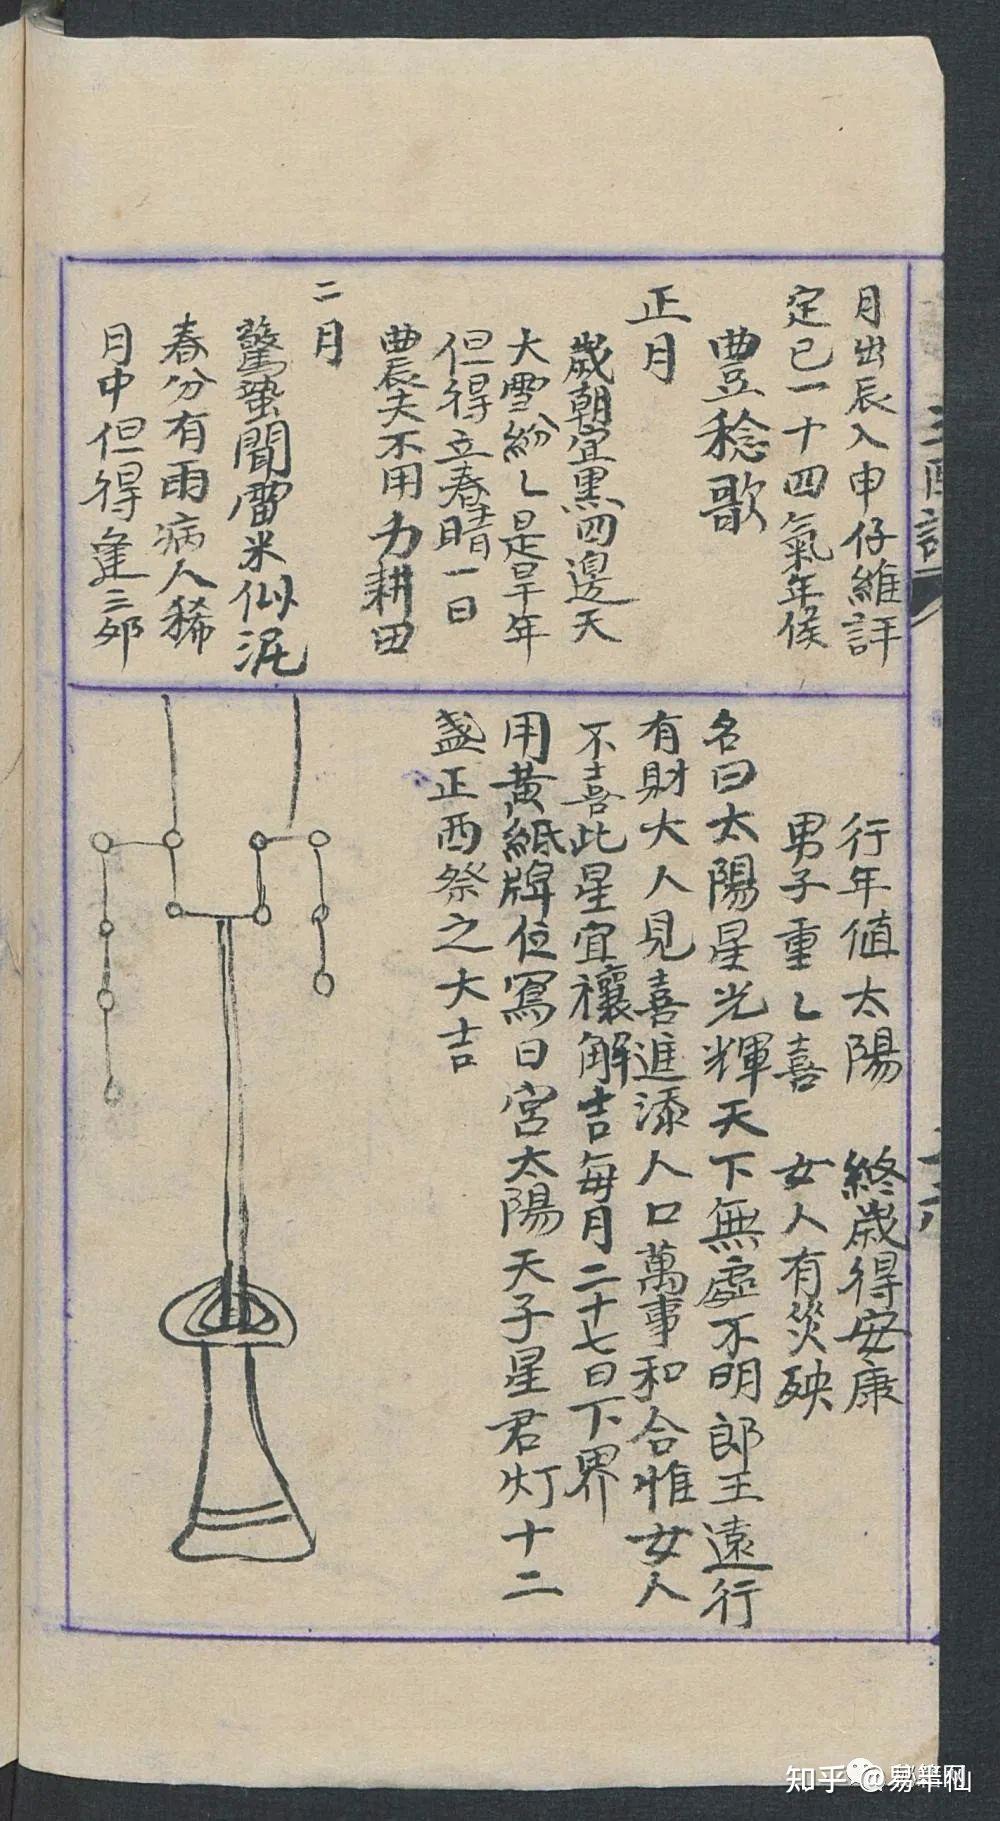 月出辰入申仔維詳
定已一十四氣年候
豊稔歌
正月
歲朝宜黑四邊天
大雪紛〻是旱年
但得立春晴一日
農夫不用力耕田
二月
驚蟄聞雷米似泥
春分有雨病人稀
月中但得逢三卯
行年值太陽 終歲得安康
男子重〻喜 女人有災殃
名曰太陽星光輝天下無處不明郎王遠行
有財大人見喜進添人口萬事和合惟女人
不喜此星宜禳解吉每月二十七日下界
用黃紙牌位寫日宮太陽天子星君灯十二
盞正西祭之大吉
知乎 @易華仙